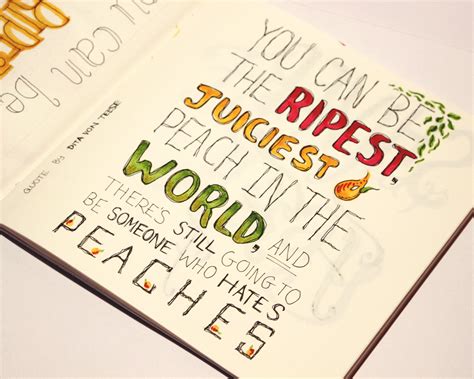 you can be
QUOTE BY DITA VON TEESE
YOU CAN BE
THE RIPEST,
JUICIEST
PEACH IN THE
WORLD, AND
THERE'S STILL GOING TO
BE SOMEONE WHO HATES
PEACHES